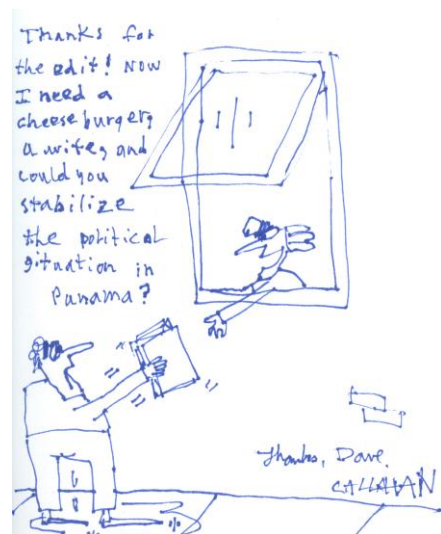 Thanks for
the edit! Now
I need a
cheeseburger,
a wife, and
could you
stabilize
the political
situation in
Panama?
Thanks, Dave.
CALLAHAN